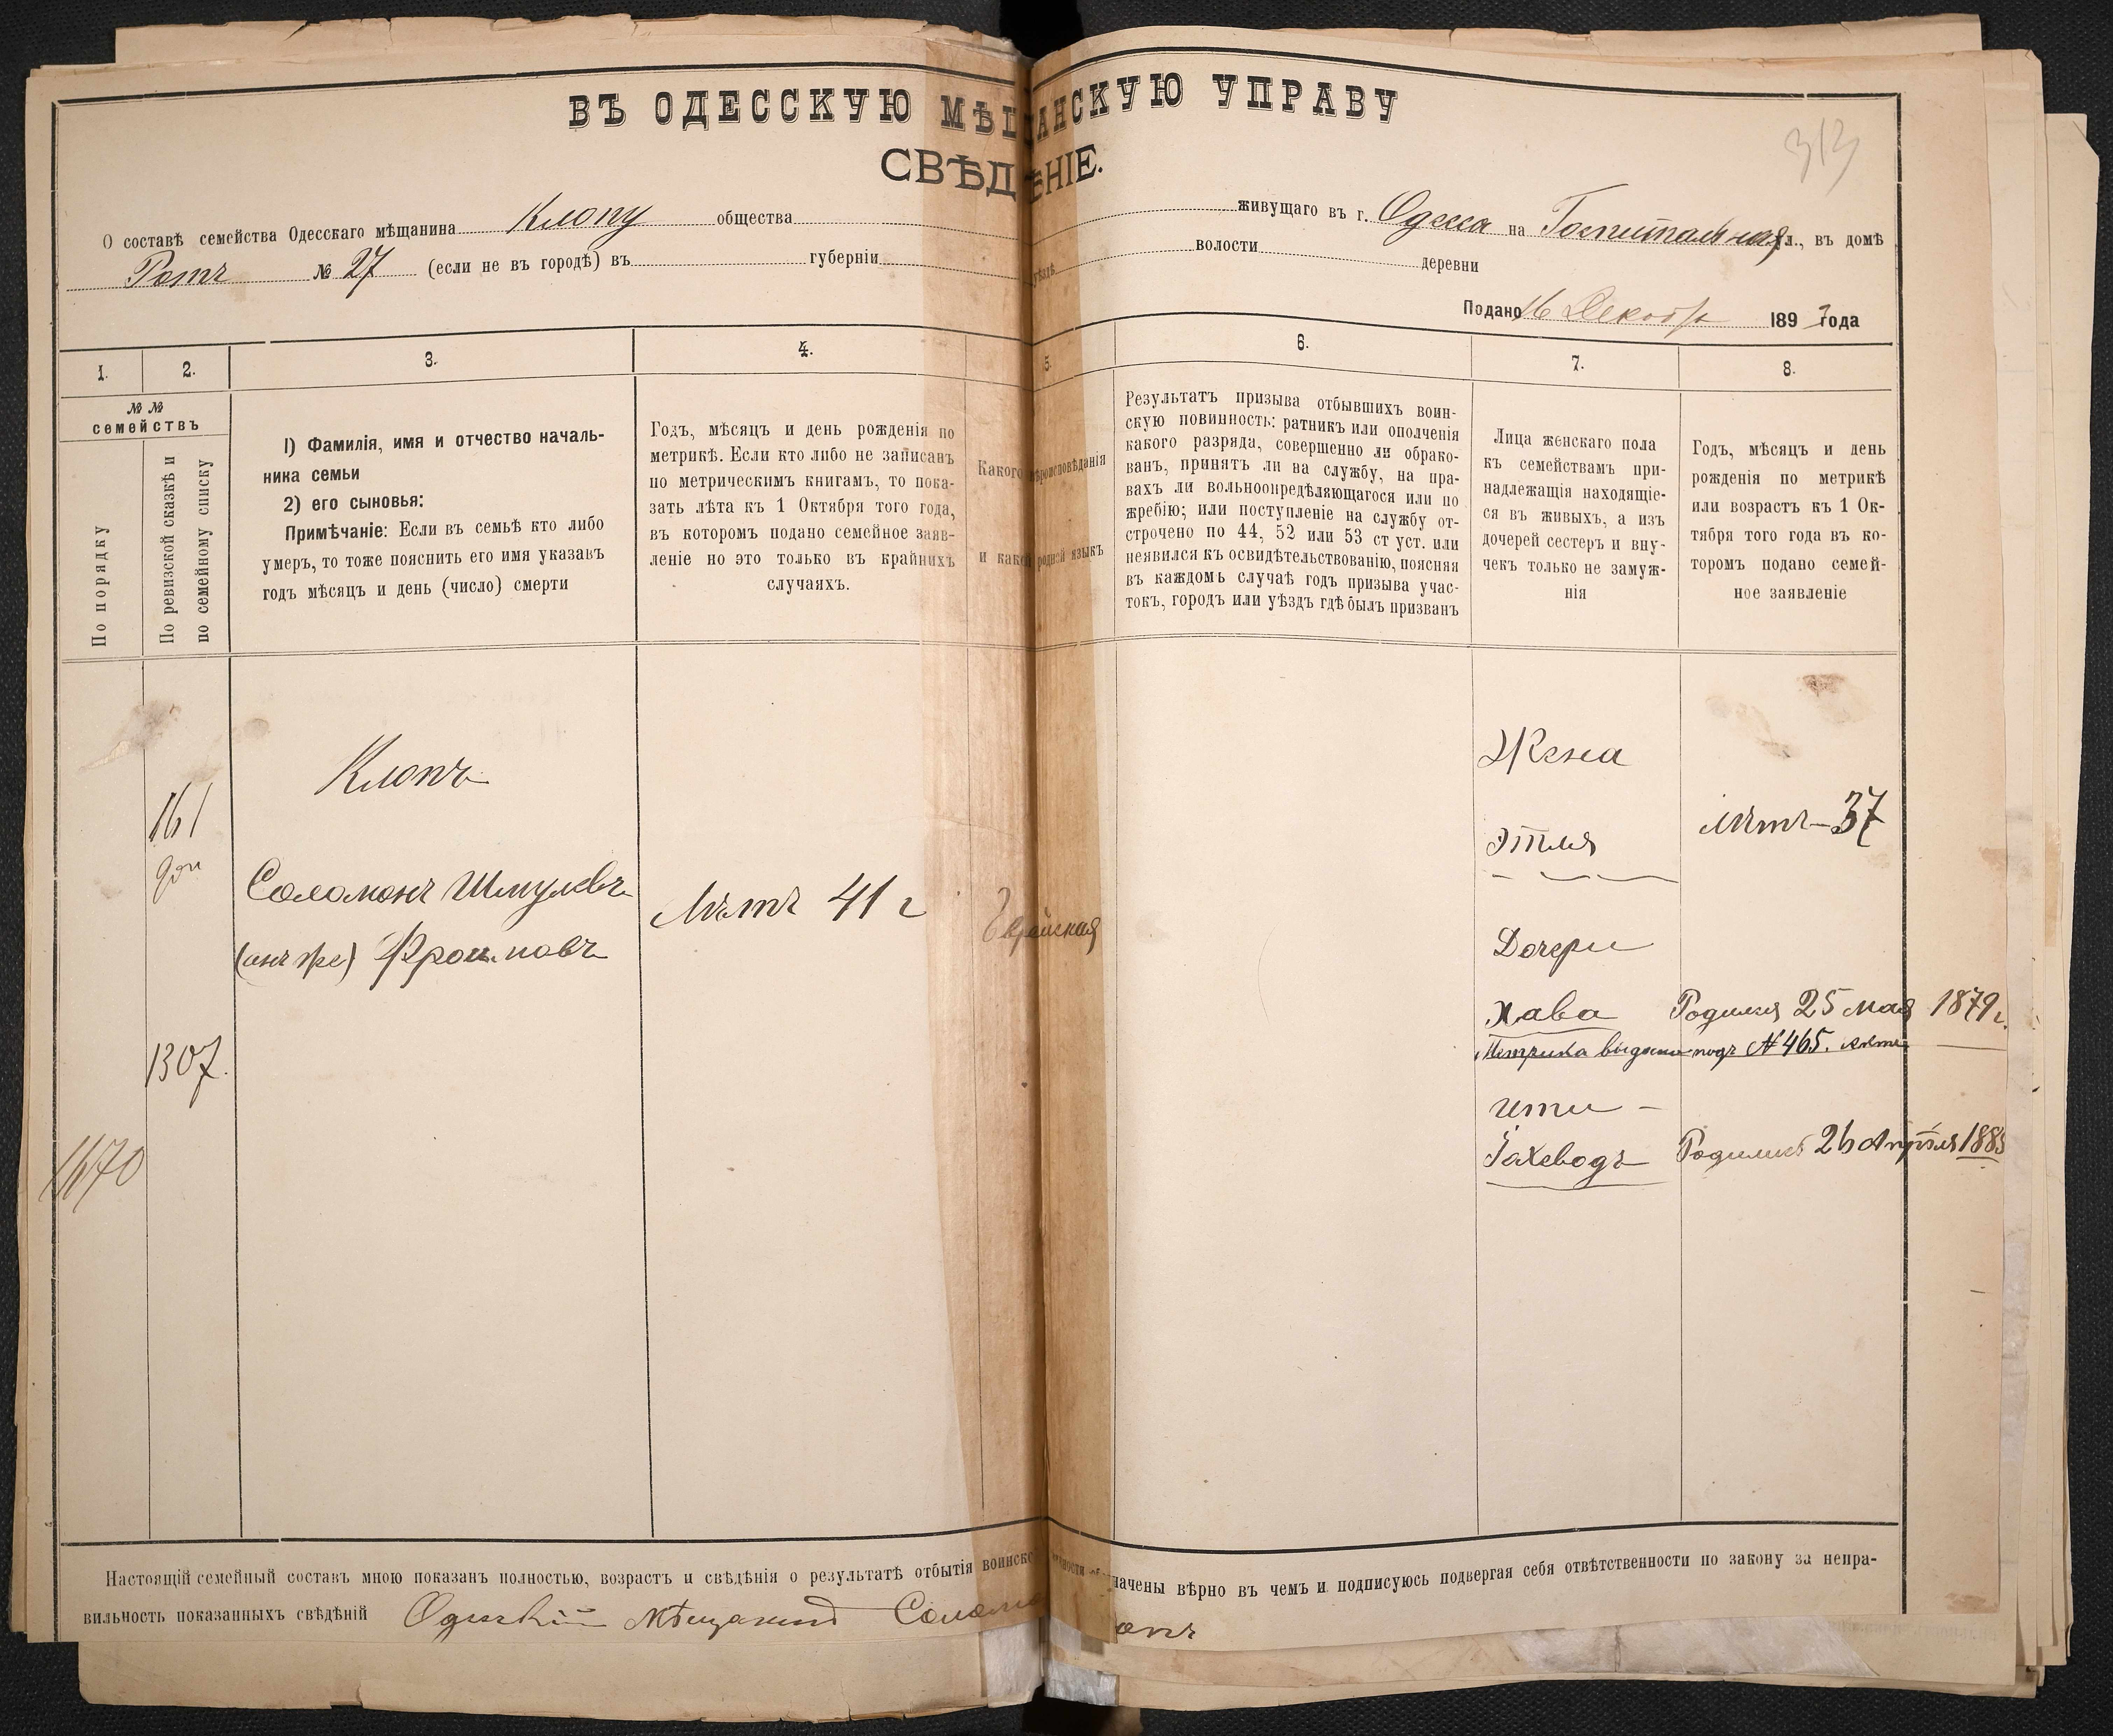 ВЪ ОДЕССКУЮ МѢЩАНСКУЮ УПРАВУ
СВѢДѢНІЕ.
313
О составѣ семейства Одесскаго мѣщанина Клопу общества живущаго въ г. Одесса на Госпитальная ул., въ домѣ
Ротъ № 27 (если не въ городѣ) въ губерніи уѣздѣ волости деревни
Подано 16 Декабр 1893 года
1. 2. 3. 4. 5. 6. 7. 8.
№ №
семействъ
По порядку
По ревизской сказкѣ и
по семейному списку
1) Фамилія, имя и отчество началь-
ника семьи
2) его сыновья:
Примѣчаніе: Если въ семьѣ кто либо
умеръ, то тоже пояснить его имя указавъ
годъ мѣсяцъ и день (число) смерти
Годъ, мѣсяцъ и день рожденія по
метрикѣ. Если кто либо не записанъ
по метрическимъ книгамъ, то пока-
зать лѣта къ 1 Октября того года,
въ которомъ подано семейное заяв-
леніе но это только въ крайнихъ
случаяхъ.
Какого вѣроисповѣданія
и какой родной языкъ
Результатъ призыва отбывшихъ воин-
скую повинность: ратникъ или ополченія
какого разряда, совершенно ли обрако-
ванъ, принятъ ли на службу, на пра-
вахъ ли вольноопредѣляющагося или по
жребію; или поступленіе на службу от-
строчено по 44, 52 или 53 ст уст. или
неявился къ освидѣтельствованію, поясняя
въ каждомъ случаѣ годъ призыва учас-
токъ, городъ или уѣздъ гдѣ былъ призванъ
Лица женскаго пола
къ семействамъ при-
надлежащія находящіе-
ся въ живыхъ, а изъ
дочерей сестеръ и вну-
чекъ только не замуж-
нія
Годъ, мѣсяцъ и день
рожденія по метрикѣ
или возрастъ къ 1 Ок-
тября того года въ ко-
торомъ подано семей-
ное заявленіе
161
доп
1307.
1670
Клопъ
Соломонъ Шмулевъ
(онъ же)
Лѣтъ 41 г
Еврейская
Жена
Этля
Лѣтъ - 37
Дочери
Хава Родилась 25 мая 1879 г.
Метрика выдана подъ № 465.
Ити -
Іахеводъ Родилась 26 Апрѣля 1883
Настоящій семейный составъ мною показанъ полностью, возрастъ и свѣдѣнія о результатѣ отбытія воинско начены вѣрно въ чемъ и подписуюсь подвергая себя отвѣтственности по закону за непра-
вильность показанныхъ свѣдѣній Одесскій Мѣщанинъ Соломо опъ